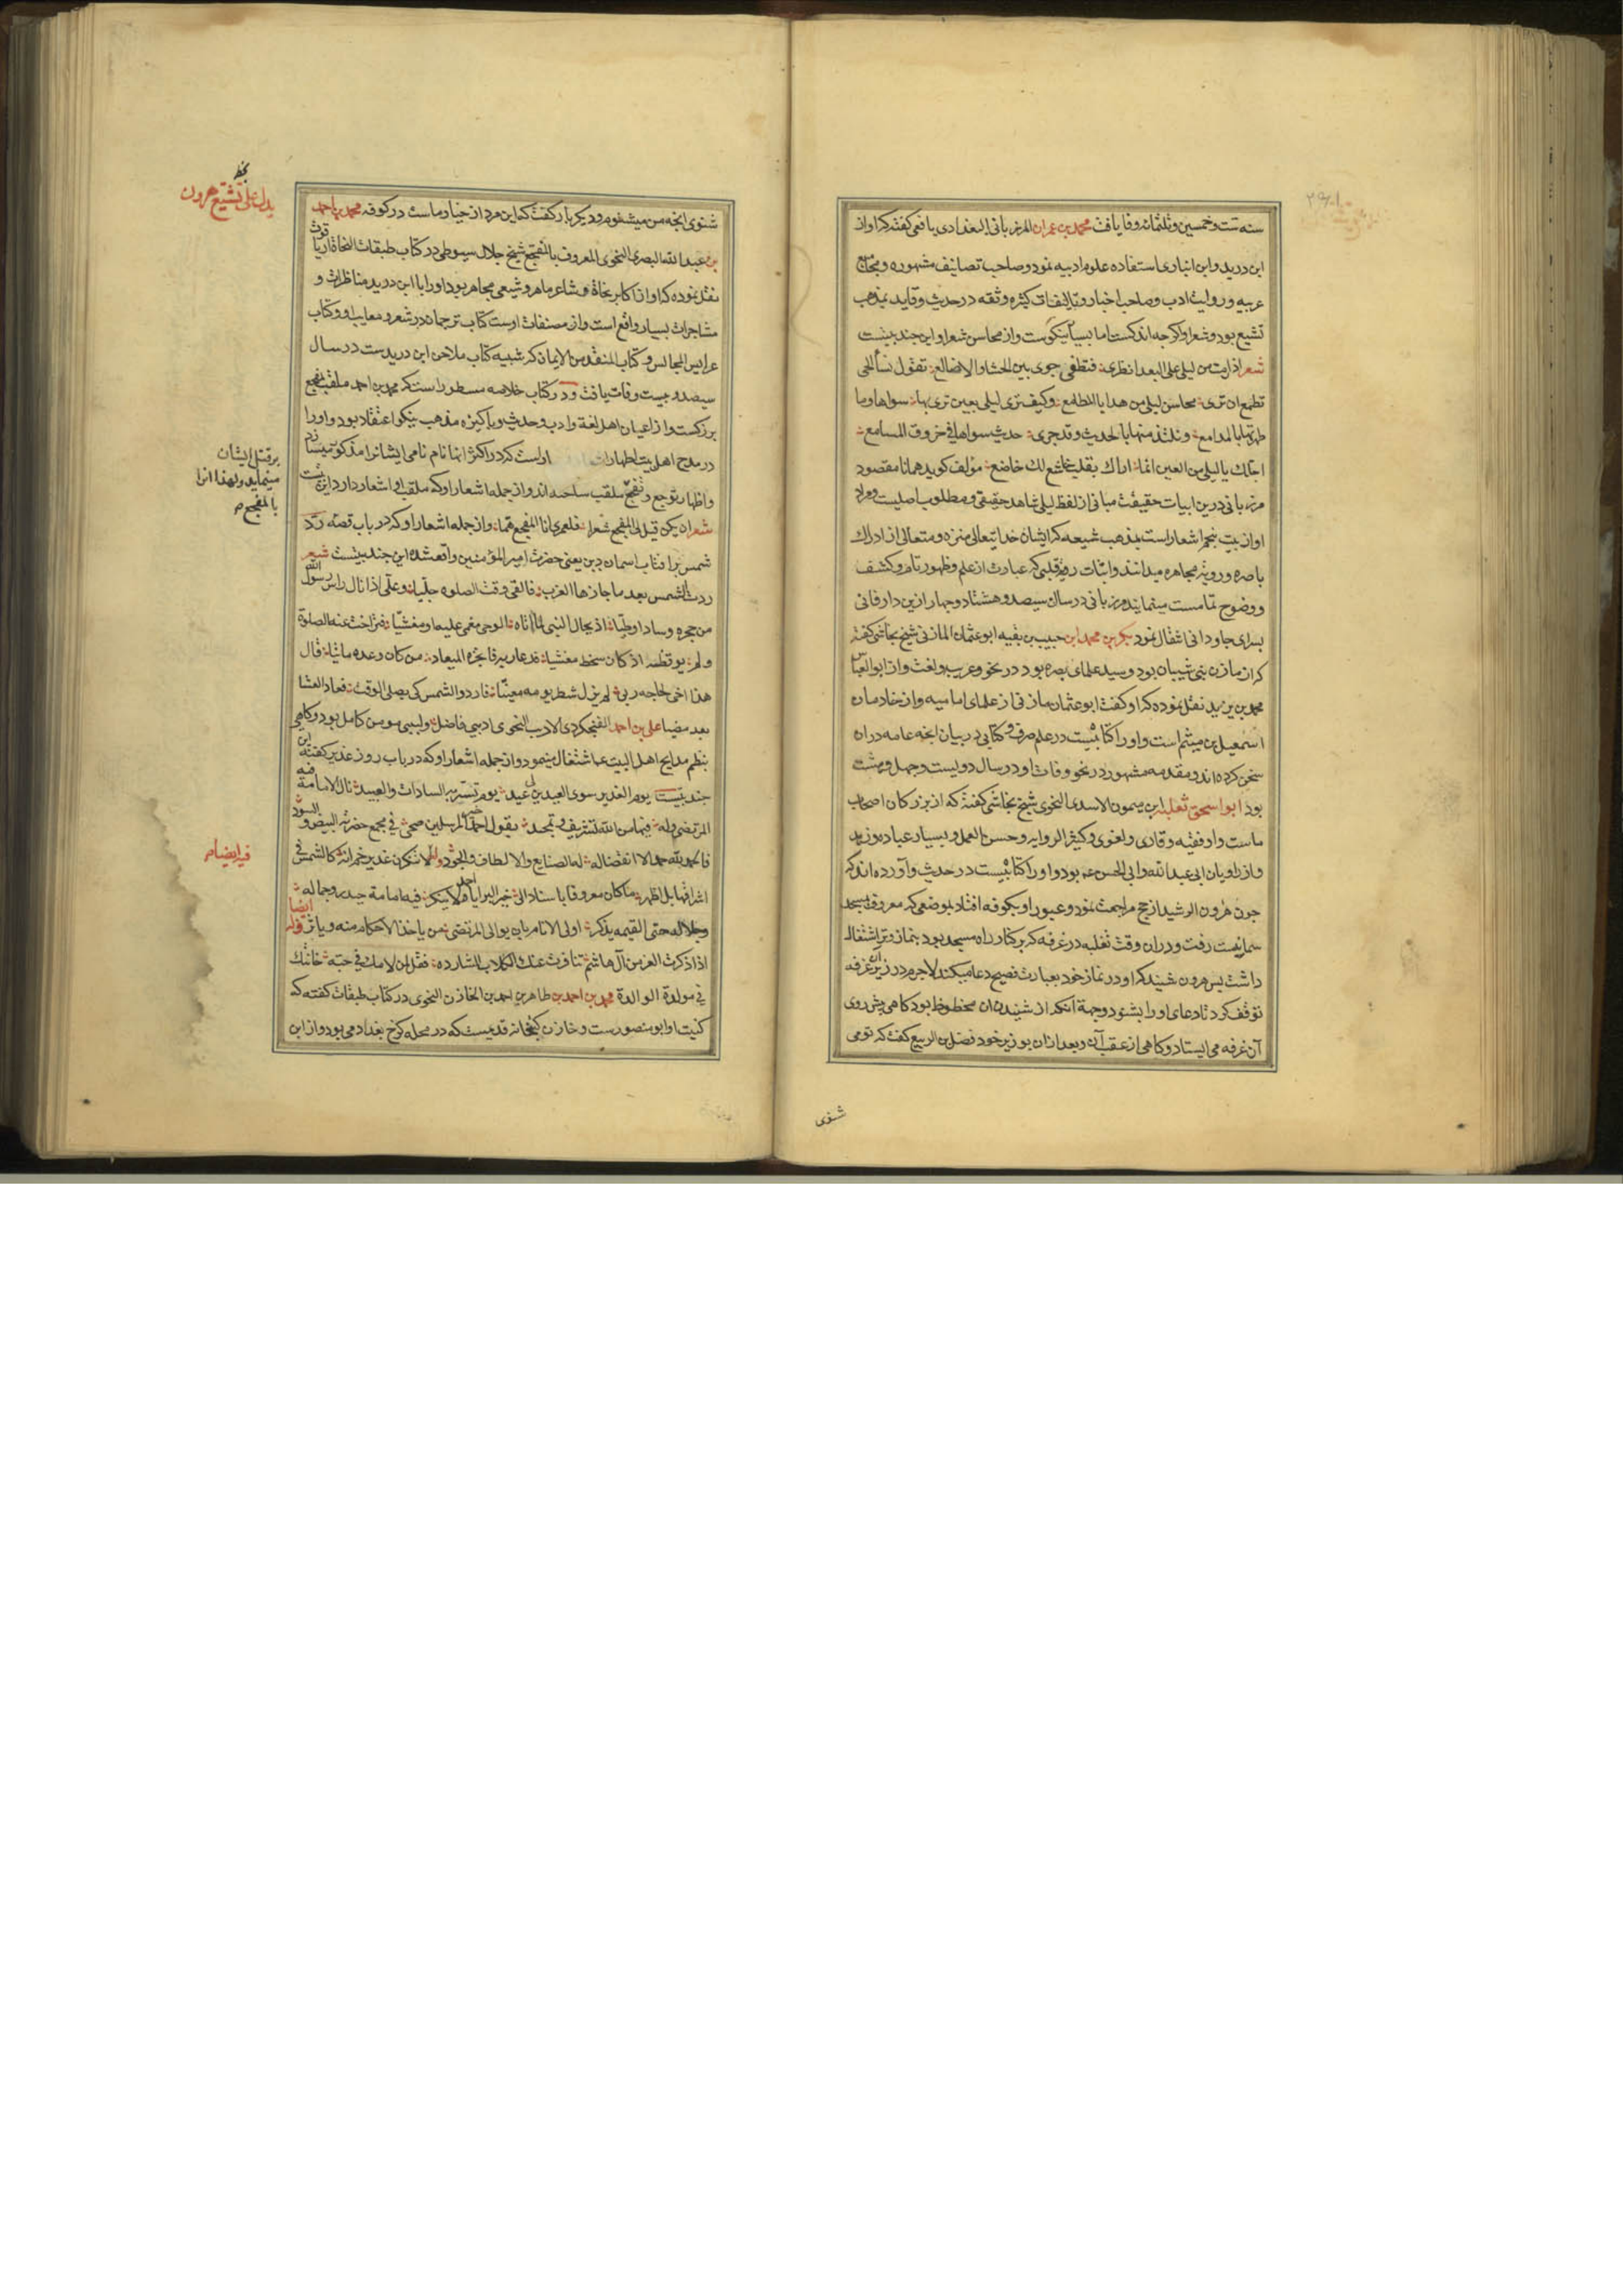 سنه ست و خمسین و ثلثمائه وفات یافت محمد بن عمران المرزبانی البغدادی یافعی گفته که او از
ابن درید و ابن انباری استفاده علوم ادبیه نمود و صاحب تصانیف مشهوره و مجامع
عربیه و روایت ادب و صاحب اخبار و تالیفات کثیره و ثقه در حدیث و قاید بمذهب
تشیع بود و شعر او اکرچه اندکست اما بسیار نیکوست و از محاسن شعر او این چند بیتست
شعر اذا رمت من لیلی علی البعد نظری فتطفی جوی بین الحشا والاضالع تقول نساء الحی
تطمع ان تری محاسن لیلی من هدایا المطامع وکیف تری لیلی بعین تری بها سواها وما
طهرتها بالمدامع ونلتذ منها بالحدیث وقد جری حدیث سواها فی خروق المسامع
اجلک یا لیلی من العین انما اراک بقلب خاشع لک خاضع مؤلف کوید همانا مقصود
مرزبانی درین ابیات حقیقت مبانی از لفظ لیلی شاهد حقیقی و مطلوب اصلیست و مراد
او از بیت پنجم اشعار است بمذهب شیعه که ایشان خدا یتعالی منزه و متعالی از ادراک
باصره و رویة مجاهره میدانند و اثبات رویة قلبی که عبارت از علم و ظهور تام و کشف
و وضوح تمامست مینمایند مرزبانی در سال سیصد و هشتاد و چهار ازین دار فانی
بسرای جاودانی انتقال نمود بکر بن محمد ابن حبیب بن بقیه ابو عثمان المازنی شیخ نجاشی کفته
که از مازن بنی شیبان بود و سید علمای بصره بود در نحو و عربیه و لغت و از ابو العباس
محمد بن یزید نقل نموده که او کفت ابو عثمان مازنی از علمای امامیه و از خادمان
اسمعیل بن میثم است و او را کتابیست در علم صرف و کتابی در بیان انچه عامه در ان
سخن کرده اند و مقدمه مشهور در نحو وفات او در سال دویست و چهل و هشت
بود ابو اسحق ثعلبه بن میمون الاسدی النحوی شیخ نجاشی کفته که از بزرکان اصحاب
ماست و او فقیه و قاری و لغوی و کثیر الروایه و حسن العمل و بسیار عباده و زهد
و از راویان ابی عبد الله و ابی الحسن عم بود و او را کتابیست در حدیث و آورده اند که
چون هرون الرشید از حج مراجعت نمود و عبور او بکوفه افتاد بموضعی که معروف بمسجد
سماکیست رفت و در ان وقت ثعلبه در غرفه که بر کنار راه مسجد بود بنماز وتر اشتغال
داشت پس هرون شنید که او در نماز خود بعبارت فصیح دعا میکند لاجرم در زیر آن غرفه
توقف کرد تا دعای او را بشنود و جهة آنکه از شنیدن ان محظوظ بود کاهی پیش روی
آن غرفه می ایستاد و کاهی از عقب آن و بعد از ان بوزیر خود فضل بن الربیع کفت که تو می
شنوی
شنوی انچه من میشنوم و دیکر بار کفت که این مرد از خیار ماست در کوفه محمد بن احمد
بن عبد الله البصری النحوی المعروف بالمفجع شیخ جلال سیوطی در کتاب طبقات النحاة از یاقوت
نقل نموده که او از اکابر نحاة و شاعر ماهر و شیعی مجاهر بود او را با ابن درید مناظرات و
مشاجرات بسیار واقع است و از مصنفات اوست کتاب ترجمان در شعر و معایب او و کتاب
عرایس المجالس و کتاب المنقذ من الایمان که شبیه کتاب ملاحن ابن دریدست در سال
سیصد و بیست وفات یافت و در کتاب خلاصه مسطور است که محمد بن احمد ملقب بمفجع
بزرکست و از اعیان اهل لغة و ادب و حدیث و پاکیزه مذهب نیکو اعتقاد بود و او را
در مدح اهل بیت اطهار است که در اکثر انها نام نامی ایشانرا مذکور میسازد
و اظهار توجع و تفجع ملقب ساخته اند و از جمله اشعار او که ملقب او اشعار دارد این بیتست
شعر ان یکن قیل لی المفجع شعرا فلعمری انا المفجع هما و از جمله اشعار او که در باب قصه رد
شمس برای آفتاب آسمان دین یعنی حضرت امیر المؤمنین واقع شده این چند بیتست شعر
ردت الشمس بعد ما جازها الغرب فالقی وقت الصلوه جلیا وعلی اذا نال راس رسول الله
من حجره وسادا وطیا اذ یحال النبی لما اتاه الوحی مغمی علیه او مغشیا فتراخت عنه الصلوة
ولم یوقظه اذ کان سخط مغشیا فدعا ربه فانجزه المیعاد من کان وعده ماتیا قال
هذا اخی لحاجه ربی لم یزل شطر یومه معینا فاردد الشمس کی یصلی الوقت فعاد العشا
بعد مضیا علی بن احمد الفنجکردی الادیب النحوی ادیبی فاضل و لبیبی مومن کامل بود و کاهی
بنظم مدایح اهل البیت عم اشتغال مینمود و از جمله اشعار او که در باب روز غدیر کفته این
چند بیتست یوم الغدیر سوی العیدین لی عید یوم تسر به السادات والعبید نال الامامة فیه
المرتضی وله فیها من الله تشریف وتمجید بقول احمد خیر المرسلین ضحی فی مجمع حضرته البیض والسود
فالحمد لله حمدا لا انقضا له له الصنایع والالطاف والجود وله لا تنکرن غدیر خم انه کالشمس فی
اشراقها بل اظهر ما کان معروفا باسناد الی خیر البرایا احمد لا ینکر فیه امامة حیدر وجماله
وجلاله حتی القیمه یذکر اولی الانام بان یوالی المرتضی من یاخذ الاحکام منه ویاثر وله ایضا
اذا ذکرت الغر من آل هاشم تنافرت عنک الکلاب الشارده فقل لمن لامک فی حبه خانتک
فی مولدک الوالدة محمد بن احمد بن طاهر بن احمد بن الخازن النحوی در کتاب طبقات کفته که
کنیت او ابو منصور ست و خازن کتبخانه قدیمست که در محله کرخ بغداد می بود و از ابن
بخطه
یدل علی تشیع هرون
بر قتل ایشان
مینماید و لهذا انرا
بالمفجع م
فیه ایضا م